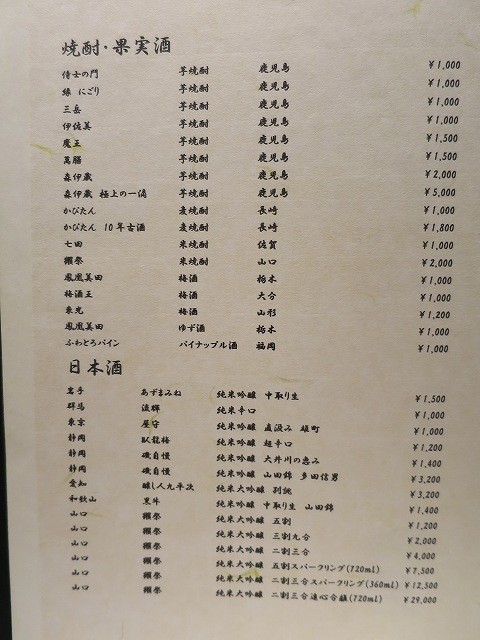 焼酎・果実酒
侍士の門 芋焼酎 鹿児島 ¥1,000
縁 にごり 芋焼酎 鹿児島 ¥1,000
三岳 芋焼酎 鹿児島 ¥1,000
伊佐美 芋焼酎 鹿児島 ¥1,000
魔王 芋焼酎 鹿児島 ¥1,500
萬膳 芋焼酎 鹿児島 ¥1,500
森伊蔵 芋焼酎 鹿児島 ¥2,000
森伊蔵 極上の一滴 芋焼酎 鹿児島 ¥5,000
かぴたん 麦焼酎 長崎 ¥1,000
かぴたん 10年古酒 麦焼酎 長崎 ¥1,800
七田 米焼酎 佐賀 ¥1,000
獺祭 米焼酎 山口 ¥2,000
鳳凰美田 梅酒 栃木 ¥1,000
梅酒王 梅酒 大分 ¥1,000
東光 梅酒 山形 ¥1,200
鳳凰美田 ゆず酒 栃木 ¥1,000
ふわとろパイン パイナップル酒 福岡 ¥1,000
日本酒
岩手 あずまみね 純米吟醸 中取り生 ¥1,500
群馬 流輝 純米辛口 ¥1,000
東京 屋守 純米吟醸 直汲み 雄町 ¥1,000
静岡 臥龍梅 純米吟醸 超辛口 ¥1,200
静岡 磯自慢 純米吟醸 大井川の恵み ¥1,400
静岡 磯自慢 純米吟醸 山田錦 多田信男 ¥3,200
愛知 醸し人九平次 純米大吟醸 別誂 ¥3,200
和歌山 黒牛 純米吟醸 中取り生 山田錦 ¥1,400
山口 獺祭 純米大吟醸 五割 ¥1,200
山口 獺祭 純米大吟醸 三割九分 ¥2,000
山口 獺祭 純米大吟醸 二割三分 ¥4,000
山口 獺祭 純米大吟醸 五割スパークリング(720ml) ¥7,500
山口 獺祭 純米大吟醸 二割三分スパークリング(360ml) ¥12,500
山口 獺祭 純米大吟醸 二割三分遠心分離(720ml) ¥29,000